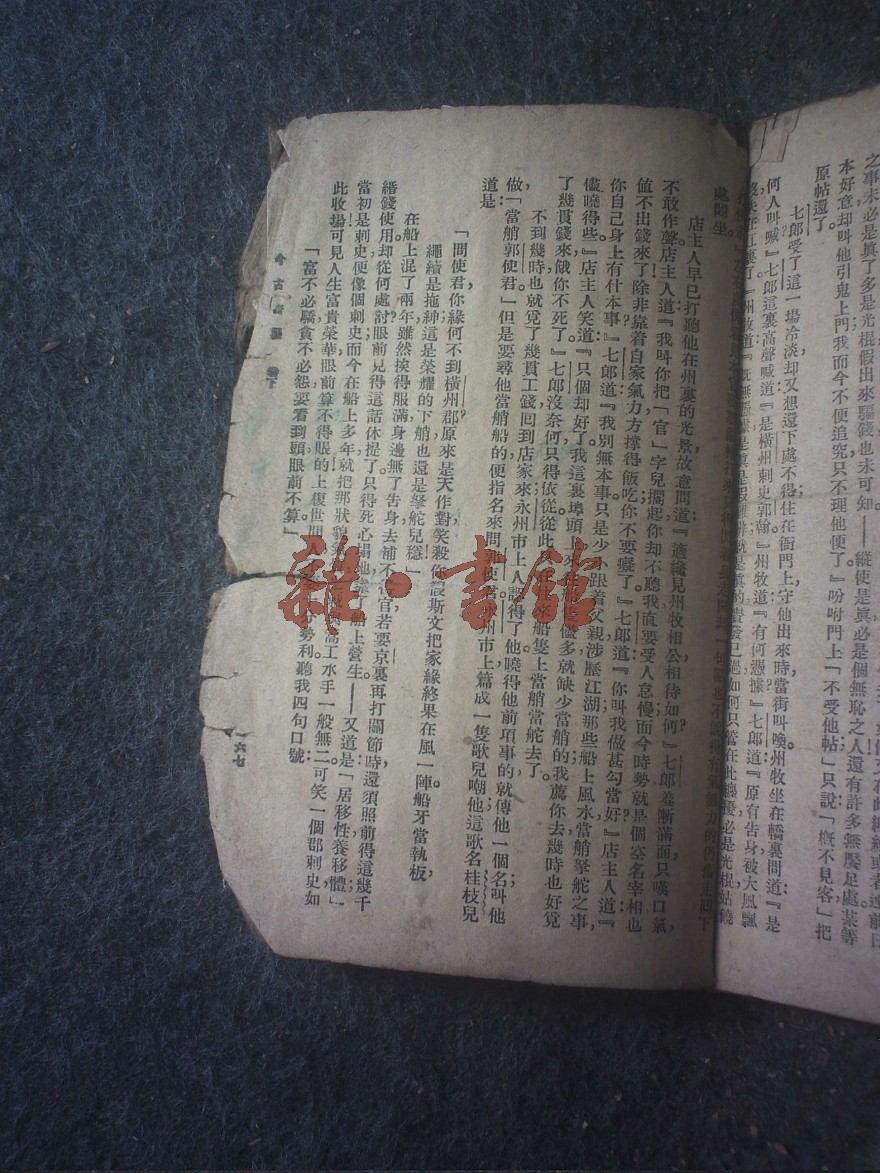 之事未必是真了多是光棍假出來騙錢也未可知——縱使是真必是個無恥之人還有許多無厭足處某等
本好意却叫他引鬼上門我而今不便追究只不理他便了』吩咐門上「不受他帖」只說「概不見客」把
原帖還了。
七郎受了這一場冷淡却又想還下處不得住在衙門上守他出來時當街叫喚州牧坐在轎裏問道：『是
何人叫喊？』七郎這裏高聲喊道：『是橫州刺史郭翰』州牧道：『有何憑據？』七郎道：『原有告身被大風飄
處閒坐。
店主人早已打聽他在州裏的光景故意問道：『適纔見州牧相公相待如何？』七郎羞慚滿面只嘆口氣，
不敢作聲店主人道：『我叫你把「官」字兒擱起你却不聽我直要受人怠慢而今時勢就是個空名宰相也
值不出錢來了除非靠着自家氣力方撐得飯吃你不要癡了』七郎道：『你叫我做甚勾當好』店主人道：『
你自己身上有什本事？』七郎道：『我別無本事只是少小跟着父親涉歷江湖那些船上風水當艄拏舵之事，
儘曉得些』店主人笑道：『只個却好了我這裏埠頭上來船儘多就缺少當艄的我薦你去幾時也好覓
了幾貫錢來餓你不死了』七郎沒奈何只得依從從此只來船隻上當艄當舵去了。
不到幾時也就覓了幾貫工錢囘到店家來永州市上人認得了他曉得他前項事的就傳他一個名叫他
做「當艄郭使君」但是要尋他當艄船的便指名來問郭使君永州市上篇成一隻歌兒嘲他這歌名桂枝兒
道是：
「問使君你緣何不到橫州郡？原來是天作對笑殺你設斯文把家緣終果在風一陣船牙當執板，
繩續是拖紳這是榮耀的下艄也還是拏舵兒穩」
在船上混了兩年雖然挨得服滿身邊無了告身去補不得官若要京裏再打關節時還須照前得這幾千
緡錢使用却從何處討眼前見得這話休提了只得死心塌地靠了船上營生——又道是：「居移性養移體」
當初是刺史便像個刺史而今在船上多年就把那狀貌
此收場可見人生富貴榮華眼前算不得賬的上復世間人
「富不必驕貧不必怨要看到頭眼前不算」
高工水手一般無二可笑一個郡刺史如
勢利聽我四句口號：
今古奇觀　卷下
六七
雜·書館